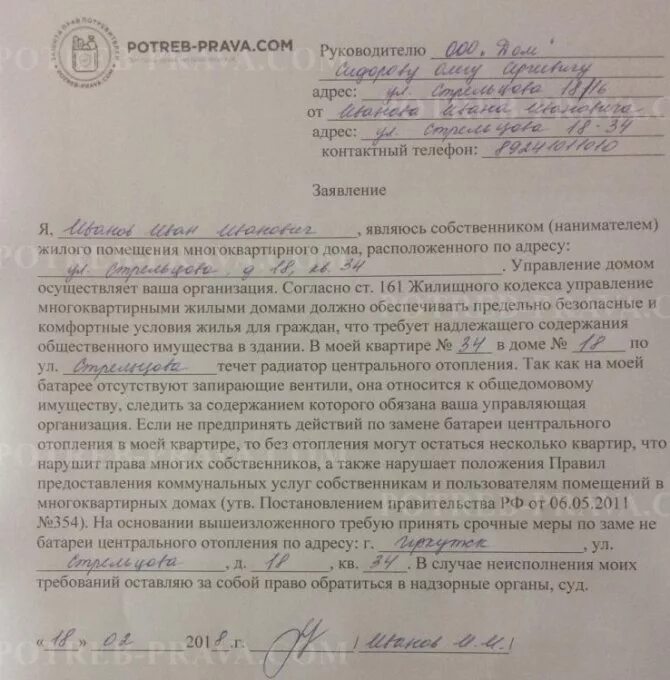 POTREB-PRAVA.COM
Руководителю ООО „Дом"
Сидорову Олегу Сергеевичу
адрес: ул. Стрельцова 18/16
от Иванова Ивана Ивановича
адрес: ул. Стрельцова 18-34
контактный телефон: 89241011010
Заявление
Я, Иванов Иван Иванович, являюсь собственником (нанимателем)
жилого помещения многоквартирного дома, расположенного по адресу:
ул. Стрельцова, д 18, кв. 34. Управление домом
осуществляет ваша организация. Согласно ст. 161 Жилищного кодекса управление
многоквартирными жилыми домами должно обеспечивать предельно безопасные и
комфортные условия жилья для граждан, что требует надлежащего содержания
общественного имущества в здании. В моей квартире № 34 в доме № 18 по
ул. Стрельцова течет радиатор центрального отопления. Так как на моей
батарее отсутствуют запирающие вентили, она относится к общедомовому
имуществу, следить за содержанием которого обязана ваша управляющая
организация. Если не предпринять действий по замене батареи центрального
отопления в моей квартире, то без отопления могут остаться несколько квартир, что
нарушит права многих собственников, а также нарушает положения Правил
предоставления коммунальных услуг собственникам и пользователям помещений в
многоквартирных домах (утв. Постановлением правительства РФ от 06.05.2011
№354). На основании вышеизложенного требую принять срочные меры по заме не
батареи центрального отопления по адресу: г. Иркутск, ул.
Стрельцова, д. 18, кв. 34. В случае неисполнения моих
требований оставляю за собой право обратиться в надзорные органы, суд.
«18» 02 2018 г. / Иванов И.И. /